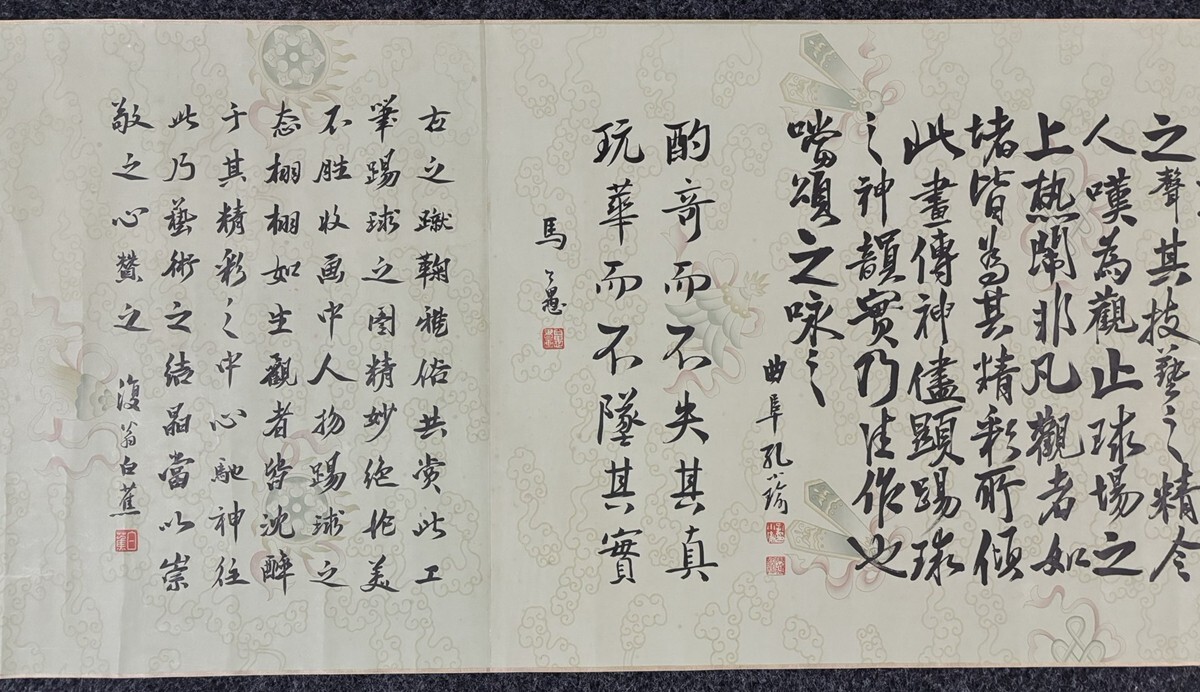 之聲其技藝之精令
人嘆為觀止球場之
上热鬧非凡觀者如
堵皆為其精彩所傾
此畫傳神儘顯踢球
之神韻實乃佳作也
當頌之咏之
曲阜孔小瑜
酌奇而不失其真
玩華而不墜其實
馬公愚
右之蹴鞠雅俗共赏此工
筆踢球之图精妙绝伦美
不胜收画中人物踢球之
态栩栩如生觀者皆沈醉
于其精彩之中心馳神往
此乃藝術之结晶當以崇
敬之心贊之
復翁白蕉